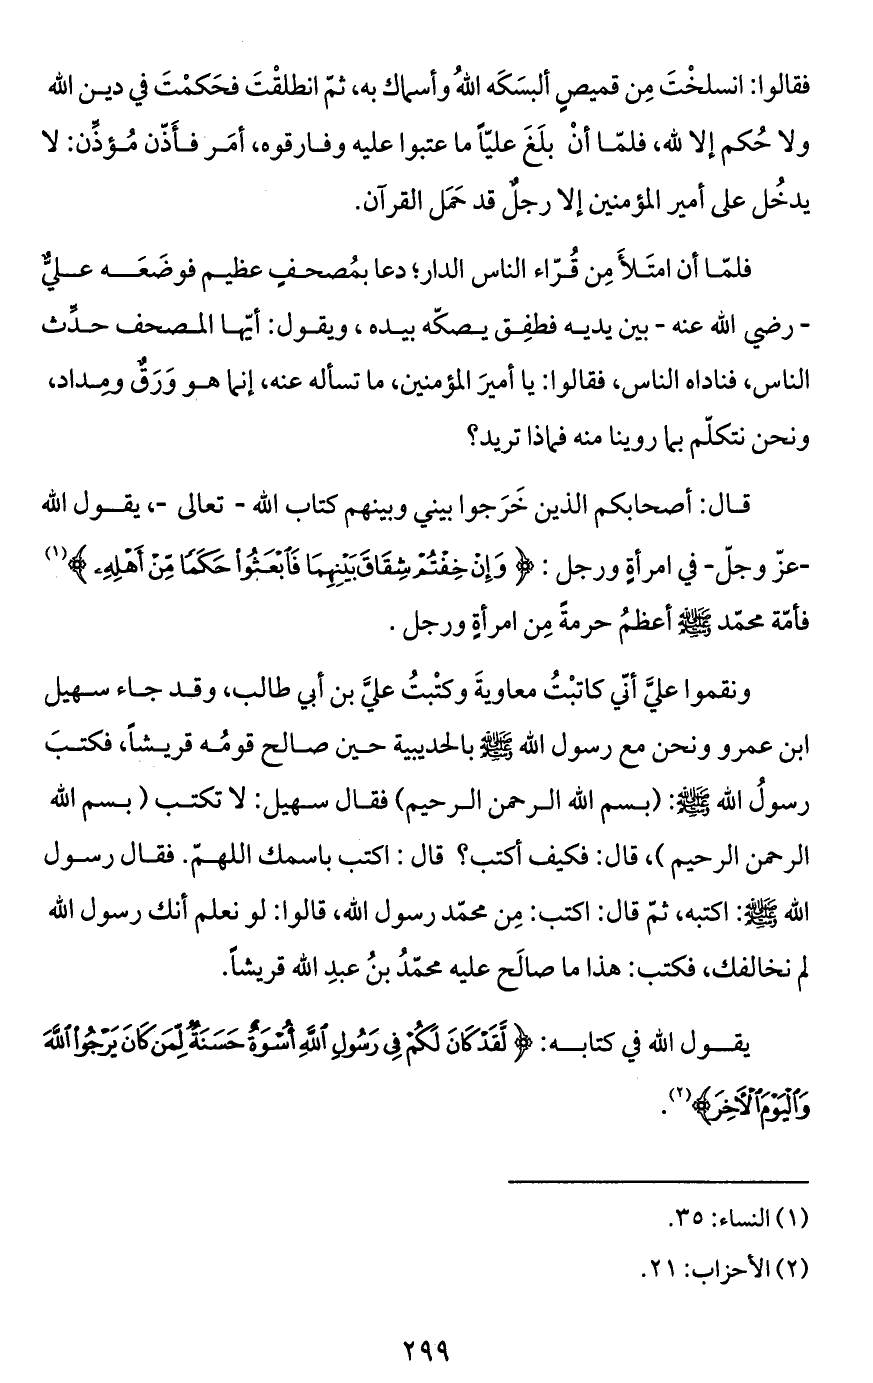 فقالوا: انسلخْتَ مِن قميصٍ ألبسَكَه اللهُ وأسماك به، ثمّ انطلقْتَ فحَكمْتَ في ديـن الله
ولا حُكم إلا لله، فلمّـا أنْ بلَغَ عليّاً ما عتبوا عليه وفـارقوه، أمَـر فـأَذّن مُـؤذِّن: لا
يدخُل على أمير المؤمنين إلا رجلٌ قد حَمَل القرآن.
فلمّـا أن امتَـلأَ مِن قُـرّاء الناس الدار؛ دعا بمُصحـفٍ عظيـم فوضَعَـه عـليٌّ
- رضي الله عنه - بين يديـه فطفِـق يـصكّه بيـده ، ويقـول: أيّهـا المـصحف حـدِّث
الناس، فناداه الناس، فقالوا: يا أميرَ المؤمنين، ما تسأله عنه، إنما هـو وَرَقٌ ومِـداد،
ونحن نتكلّم بما روينا منه فماذا تريد؟
قـال: أصحابكم الذين خَرَجوا بيني وبينهم كتاب الله - تعالى -، يقـول الله
-عزّ وجلّ- في امرأةٍ ورجل : ﴿ وَإِنْ خِفْتُمْ شِقَاقَ بَيْنِهِمَا فَٱبْعَثُوا۟ حَكَمًا مِّنْ أَهْلِهِۦ ﴾(١)
فأمّة محمّد ﷺ أعظمُ حرمةً مِن امرأةٍ ورجل .
ونقموا عليَّ أنّي كاتبْتُ معاويةَ وكتْبتُ عليَّ بن أبي طالب، وقـد جـاء سـهيل
ابن عمرو ونحن مع رسول الله ﷺ بالحديبية حـين صـالح قومُـه قريـشاً، فكتـبَ
رسولُ الله ﷺ: (بـسم الله الـرحمن الـرحيم) فقـال سـهيل: لا تكتـب ( بـسم الله
الرحمن الرحيم )، قال: فكيف أكتب؟ قال : اكتب باسمك اللهـمّ. فقـال رسـول
الله ﷺ: اكتبه، ثمّ قال: اكتب: مِن محمّد رسول الله، قالوا: لو نعلم أنك رسول الله
لم نخالفك، فكتب: هذا ما صالَح عليه محمّدُ بنُ عبدِ الله قريشاً.
يقـول الله في كتابـه: ﴿ لَّقَدْ كَانَ لَكُمْ فِى رَسُولِ ٱللَّهِ أُسْوَةٌ حَسَنَةٌ لِّمَن كَانَ يَرْجُوا۟ ٱللَّهَ
وَٱلْيَوْمَ ٱلْـَٔاخِرَ﴾(٢).
(١) النساء: ٣٥.
(٢) الأحزاب: ٢١.
٢٩٩